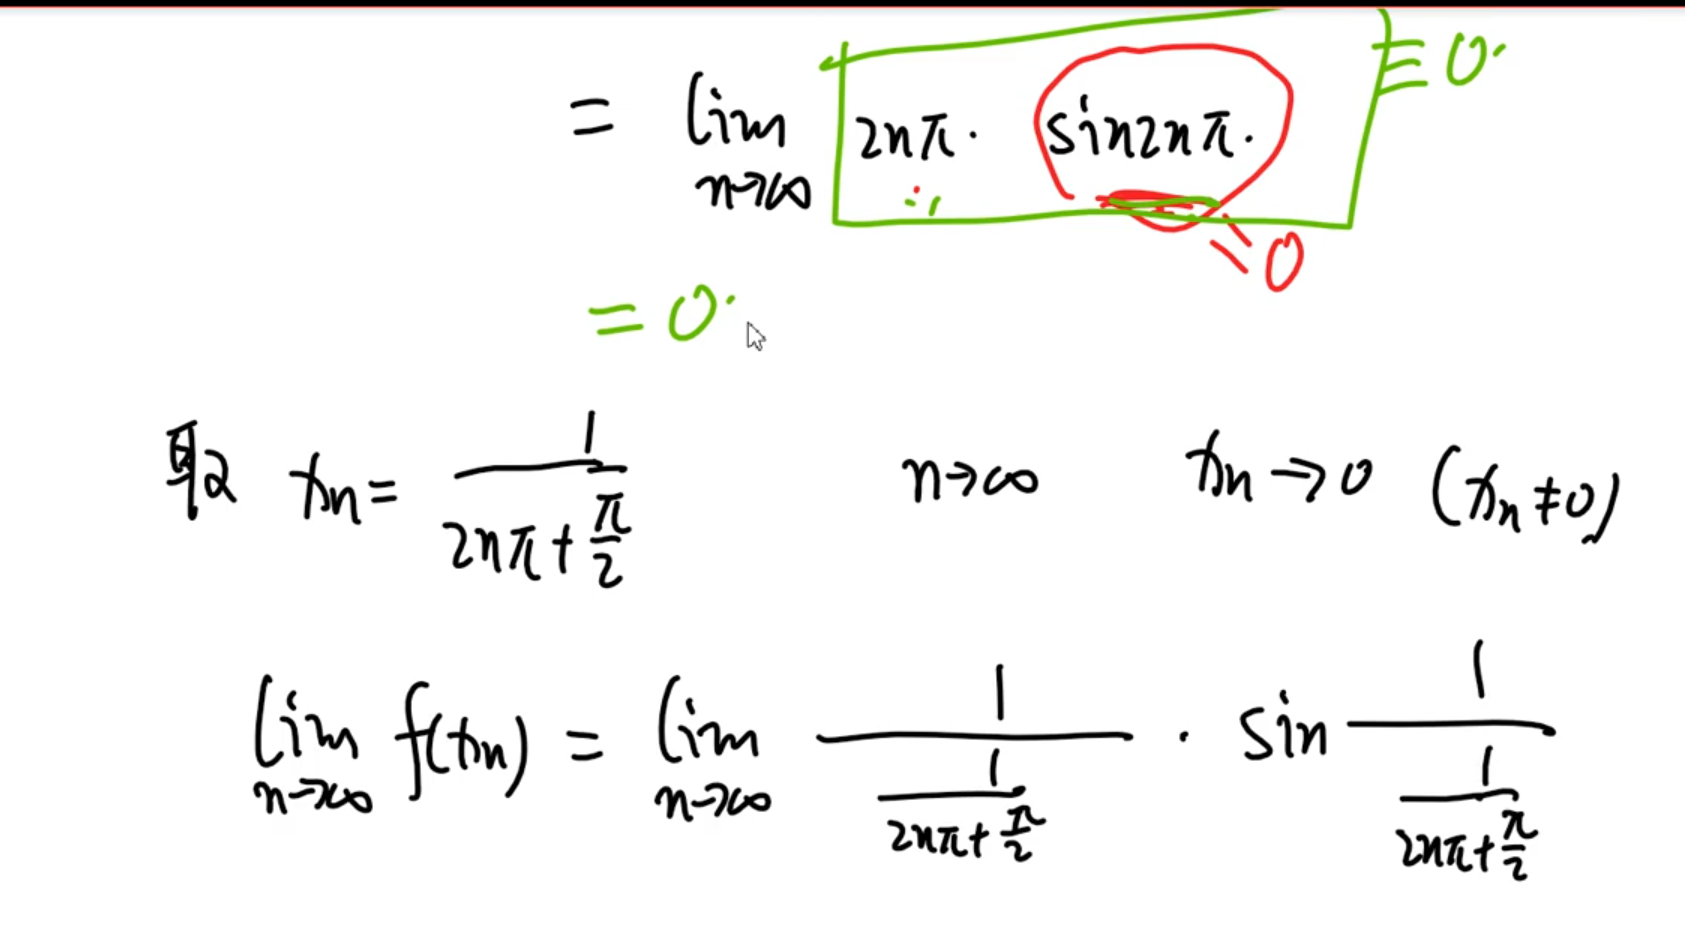 = lim n→∞ 2nπ · sin2nπ · ≡ 0
= 0
= 0
取 xn = 1/(2nπ + π/2) n→∞ xn → 0 (xn ≠ 0)
lim n→∞ f(xn) = lim n→∞ 1/(1/(2nπ + π/2)) · sin 1/(1/(2nπ + π/2))